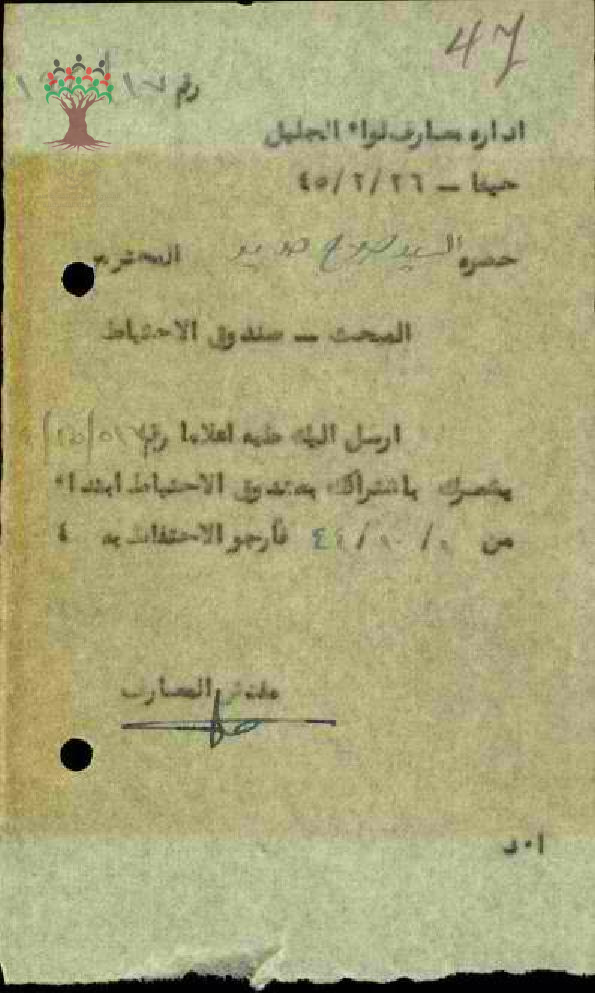 47
رقم ١٧
اداره معارف لواء الجليل
حيفا ـ ٤٥/٢/٢٦
حضره السيد المحترم
المبحث ـ صندوق الاحتياط
ارسل اليك طيه اعلاما رقم
يشعرك باشتراكك بصندوق الاحتياط ابتداء
من ١/١٠/٤٤ فأرجو الاحتفاظ به ٤
مفتش المعارف
ا٠د